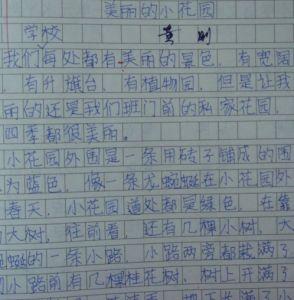 美丽的小花园
学校 黄刚
我们每处都有美丽的景色。有宽阔
，有升旗台，有植物园，但是让我
丽的还是我们班门前的私家花园，
四季都很美丽。
小花园外围是一条用砖子铺成的围
为蓝色，像一条龙蜿蜒在小花园外
春天，小花园道处都是绿色，在靠
大树。往前看，还有几棵小树，大
蜿蜒的一条小路，小路两旁都栽满了
小路前有几棵桂花树，树上开满了